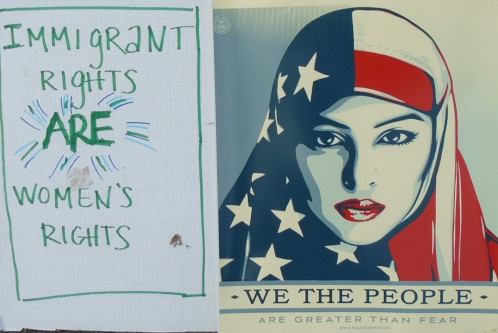 IMMIGRANT
RIGHTS
ARE
WOMEN'S
RIGHTS
WE THE PEOPLE
ARE GREATER THAN FEAR